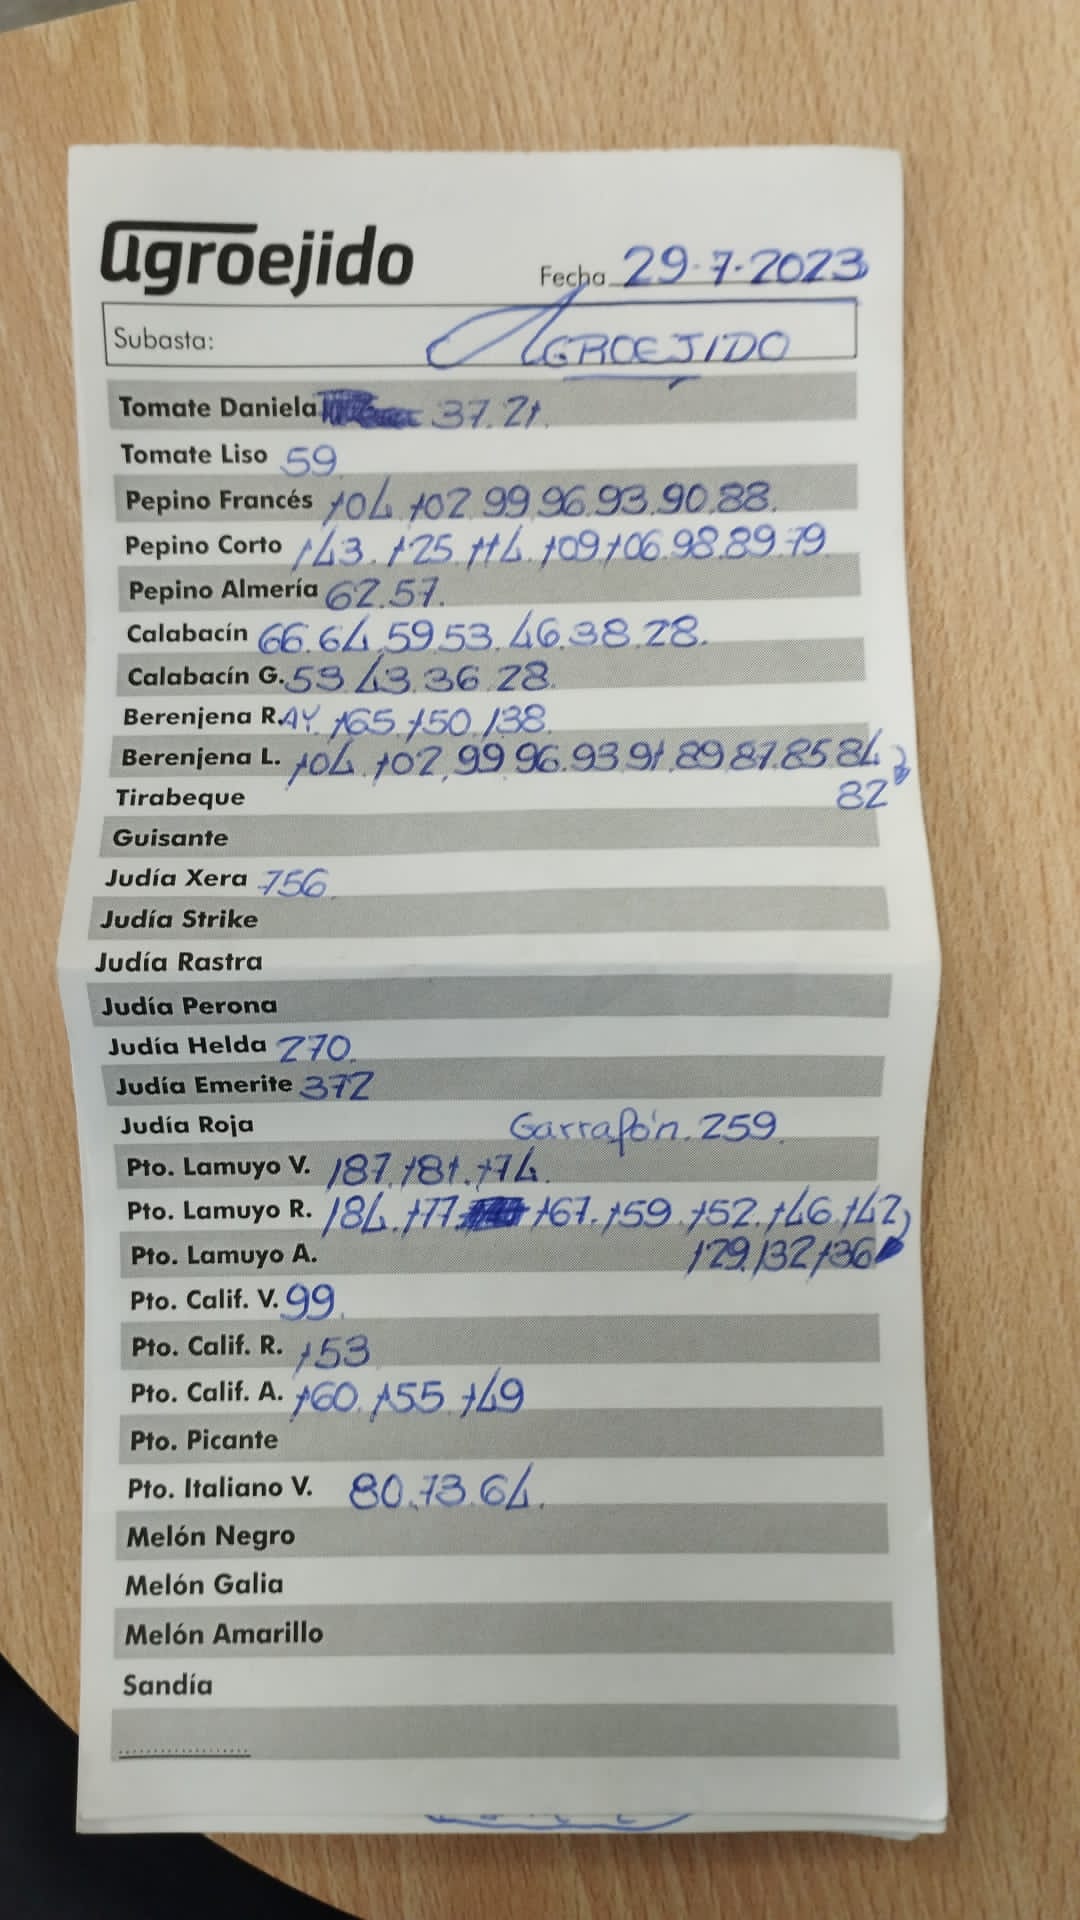 agroejido
Fecha 29-7-2023
Subasta: AGROEJIDO
Tomate Daniela 37.21.
Tomate Liso 59
Pepino Francés 104.102.99.96.93.90.88.
Pepino Corto 143.125.114.109.106.98.89.79
Pepino Almería 62.57.
Calabacín 66.64.59.53.46.38.28.
Calabacín G. 53.43.36.28.
Berenjena R. AY. 165.150.138.
Berenjena L. 104.102.99.96.93.91.89.87.85.84
82
Tirabeque
Guisante
Judía Xera 756.
Judía Strike
Judía Rastra
Judía Perona
Judía Helda 270.
Judía Emerite 372
Judía Roja Garrafón. 259.
Pto. Lamuyo V. 187.181.174.
Pto. Lamuyo R. 184.177. 167.159.152.146.142
Pto. Lamuyo A. 129.132.136
Pto. Calif. V. 99.
Pto. Calif. R. 153
Pto. Calif. A. 160.155.149
Pto. Picante
Pto. Italiano V. 80.73.64.
Melón Negro
Melón Galia
Melón Amarillo
Sandía